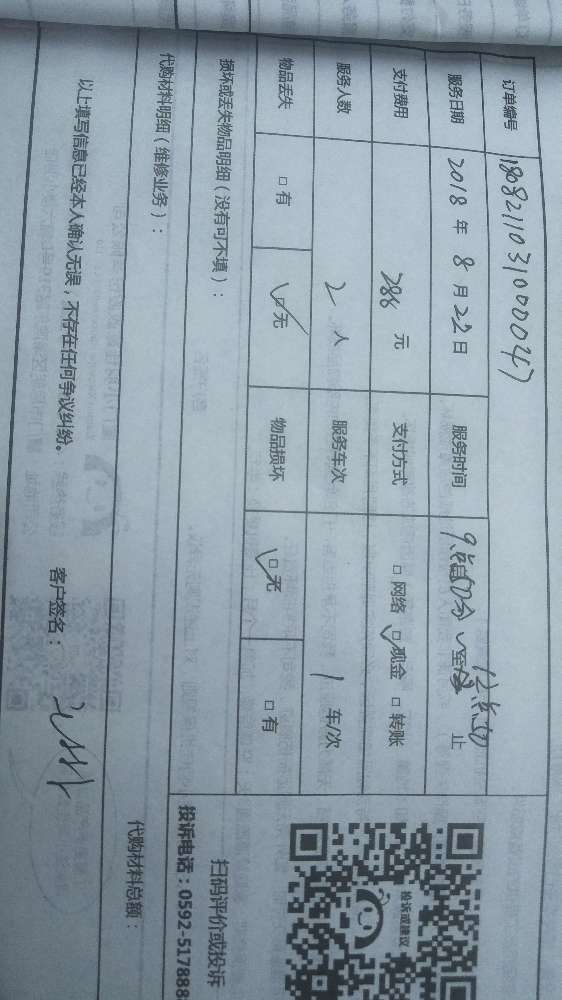 订单编号 1808211031000047
服务日期 2018 年 8 月 22 日 服务时间 9点 50分 至 止
支付费用 288 元 支付方式 □ 网络 ☑ 现金 □ 转账
服务人数 2 人 服务车次 1 车/次
物品丢失 □ 有 ☑ 无 物品损坏 ☑ 无 □ 有
损坏或丢失物品明细（没有可不填）：
代购材料明细（维修业务）：
代购材料总额：
以上填写信息已经本人确认无误，不存在任何争议纠纷。 客户签名：
投诉或建议
扫码评价或投诉
投诉电话：0592-5178888